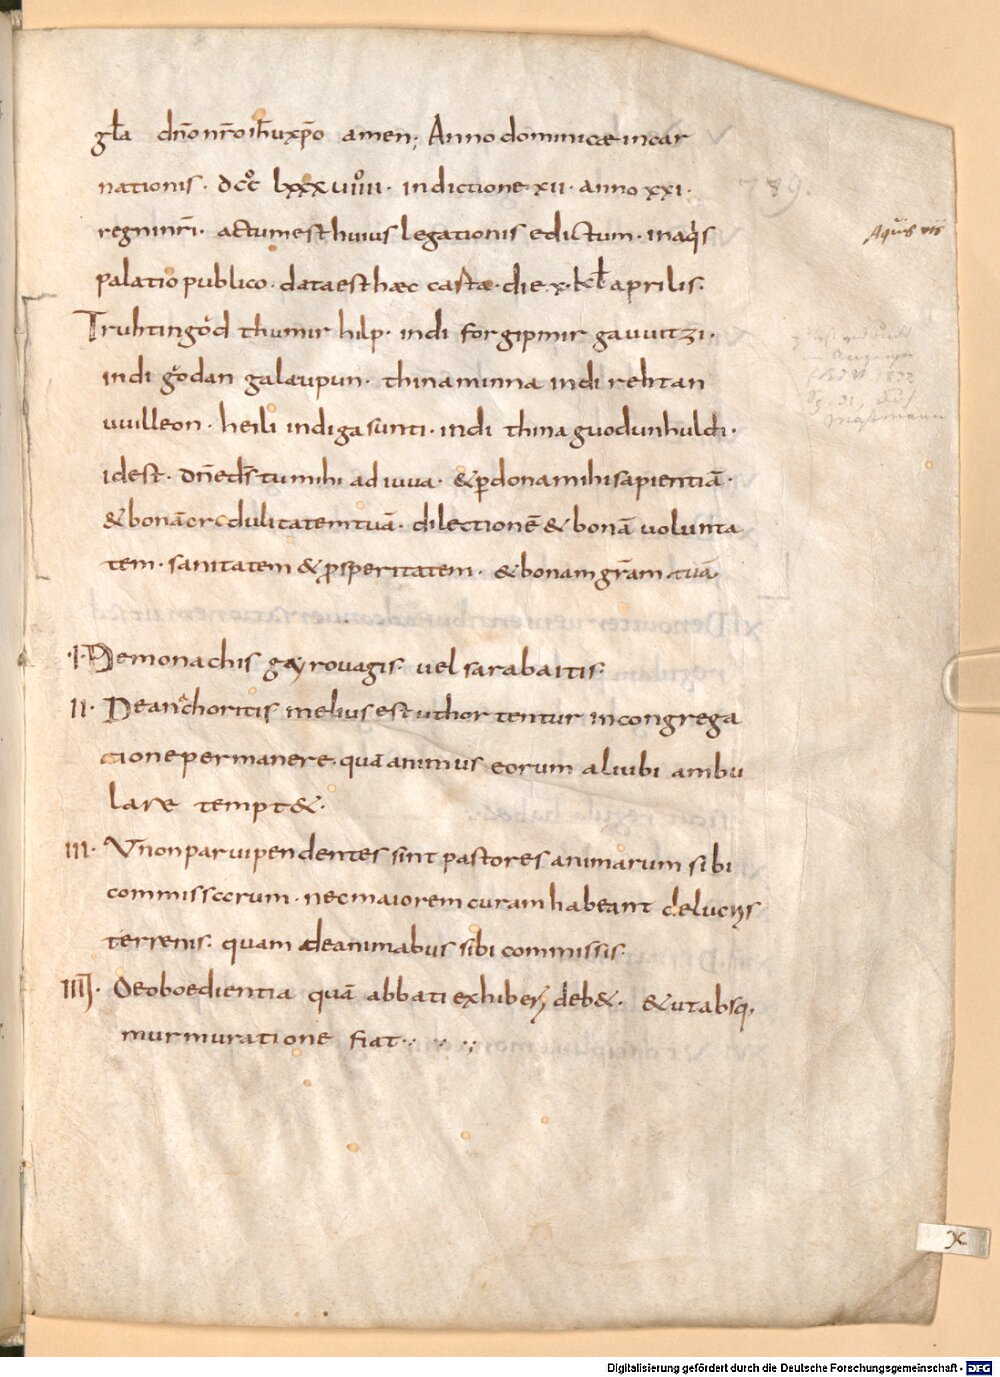 gl̄a dn̄o nr̄o ih̄u xp̄o amen; Anno dominicae incar
nationis· dcc̊ lxxxuiiii· indictione xii· anno xxi·
regni nr̄i· actum est huius legationis edictum· in aq̇s
palatio publico· data est haec carta· die·x·kl̄ aprilis·
Truhtin god thu mir hilp· indi forgip mir gauuitzi·
indi godan galaupun· thina minna indi rehtan
uuilleon· heili indi gasunti· indi thina guodun huldi·
id est· dn̄e ds̄ tu mihi adiuua· & p̱dona mihi sapientiā·
& bonā credulitatem tuā· dilectionē & bonā uolunta
tem· sanitatem & p̱speritatem· & bonam gr̄am tuā
·I· De monachis gẏrouagis· uel sarabaitis·
II· De anachoritis melius est ut hortentur in congrega
tione permanere· quā animus eorum aliubi ambu
lare tempt&·
III· Ut non paruipendentes sint pastores animarum sibi
commissorum· nec maiorem curam habeant de lucris
terrenis· quam de animabus sibi commissis·
IIII· De oboedientia quā abbati exhiberi deb&· & ut absq;
murmuratione fiat·
789.
Aquis
x
Digitalisierung gefördert durch die Deutsche Forschungsgemeinschaft - DFG